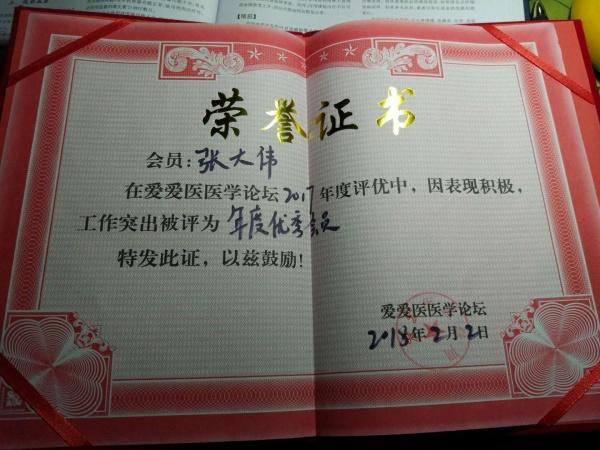 荣誉证书
会员：张大伟
在爱爱医医学论坛2017年度评优中，因表现积极，
工作突出被评为 年度优秀会员
特发此证，以兹鼓励！
爱爱医医学论坛
2018年2月2日